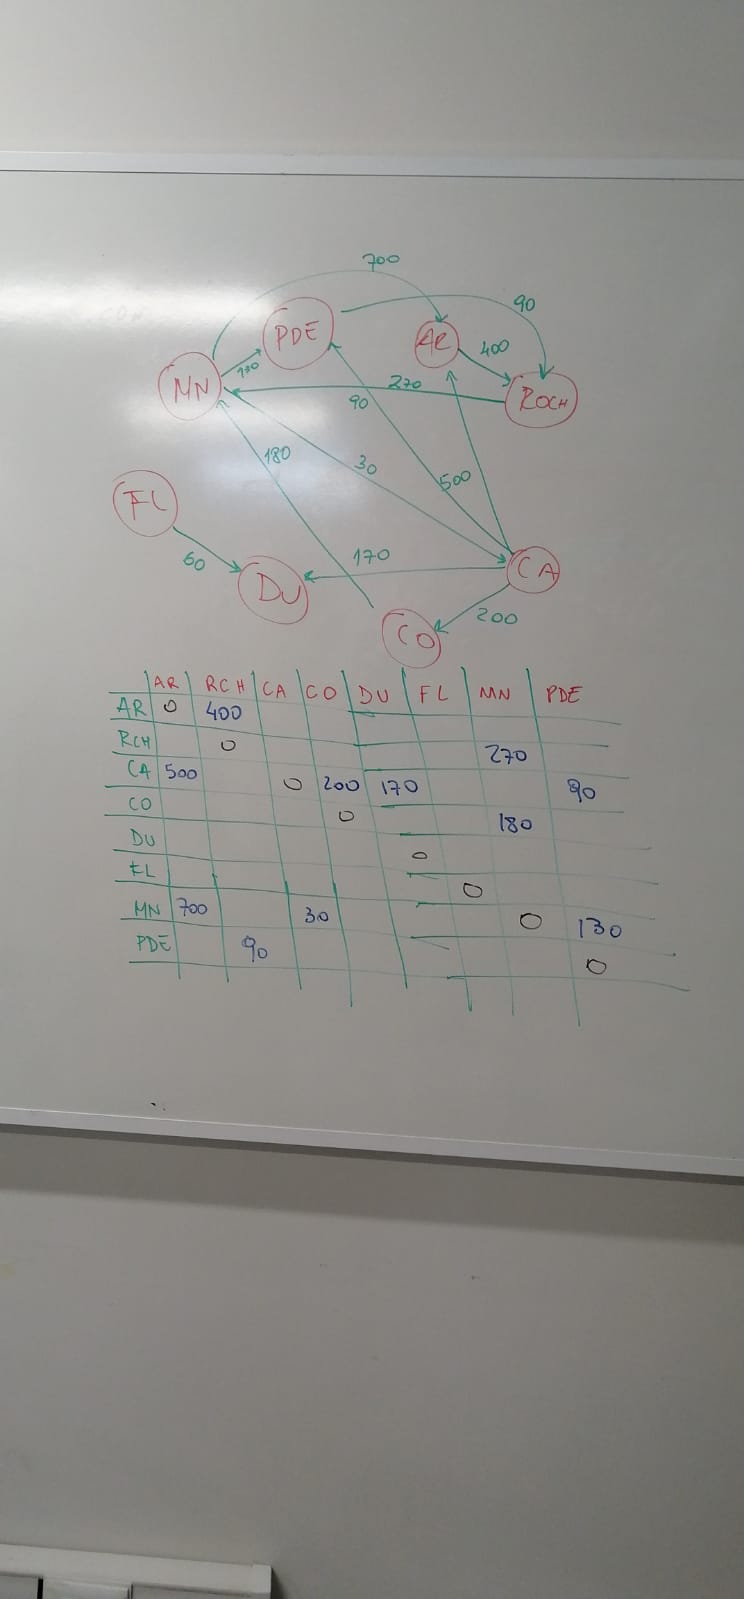 700
90
PDE
AR
400
130
MN
270
ROCH
90
180
30
500
FL
60
170
CA
DU
200
CO
AR RCH CA CO DU FL MN PDE
AR 0 400
RCH 0 270
CA 500 0 200 170 90
CO 0 180
DU 0
FL 0
MN 700 30 0 130
PDE 90 0